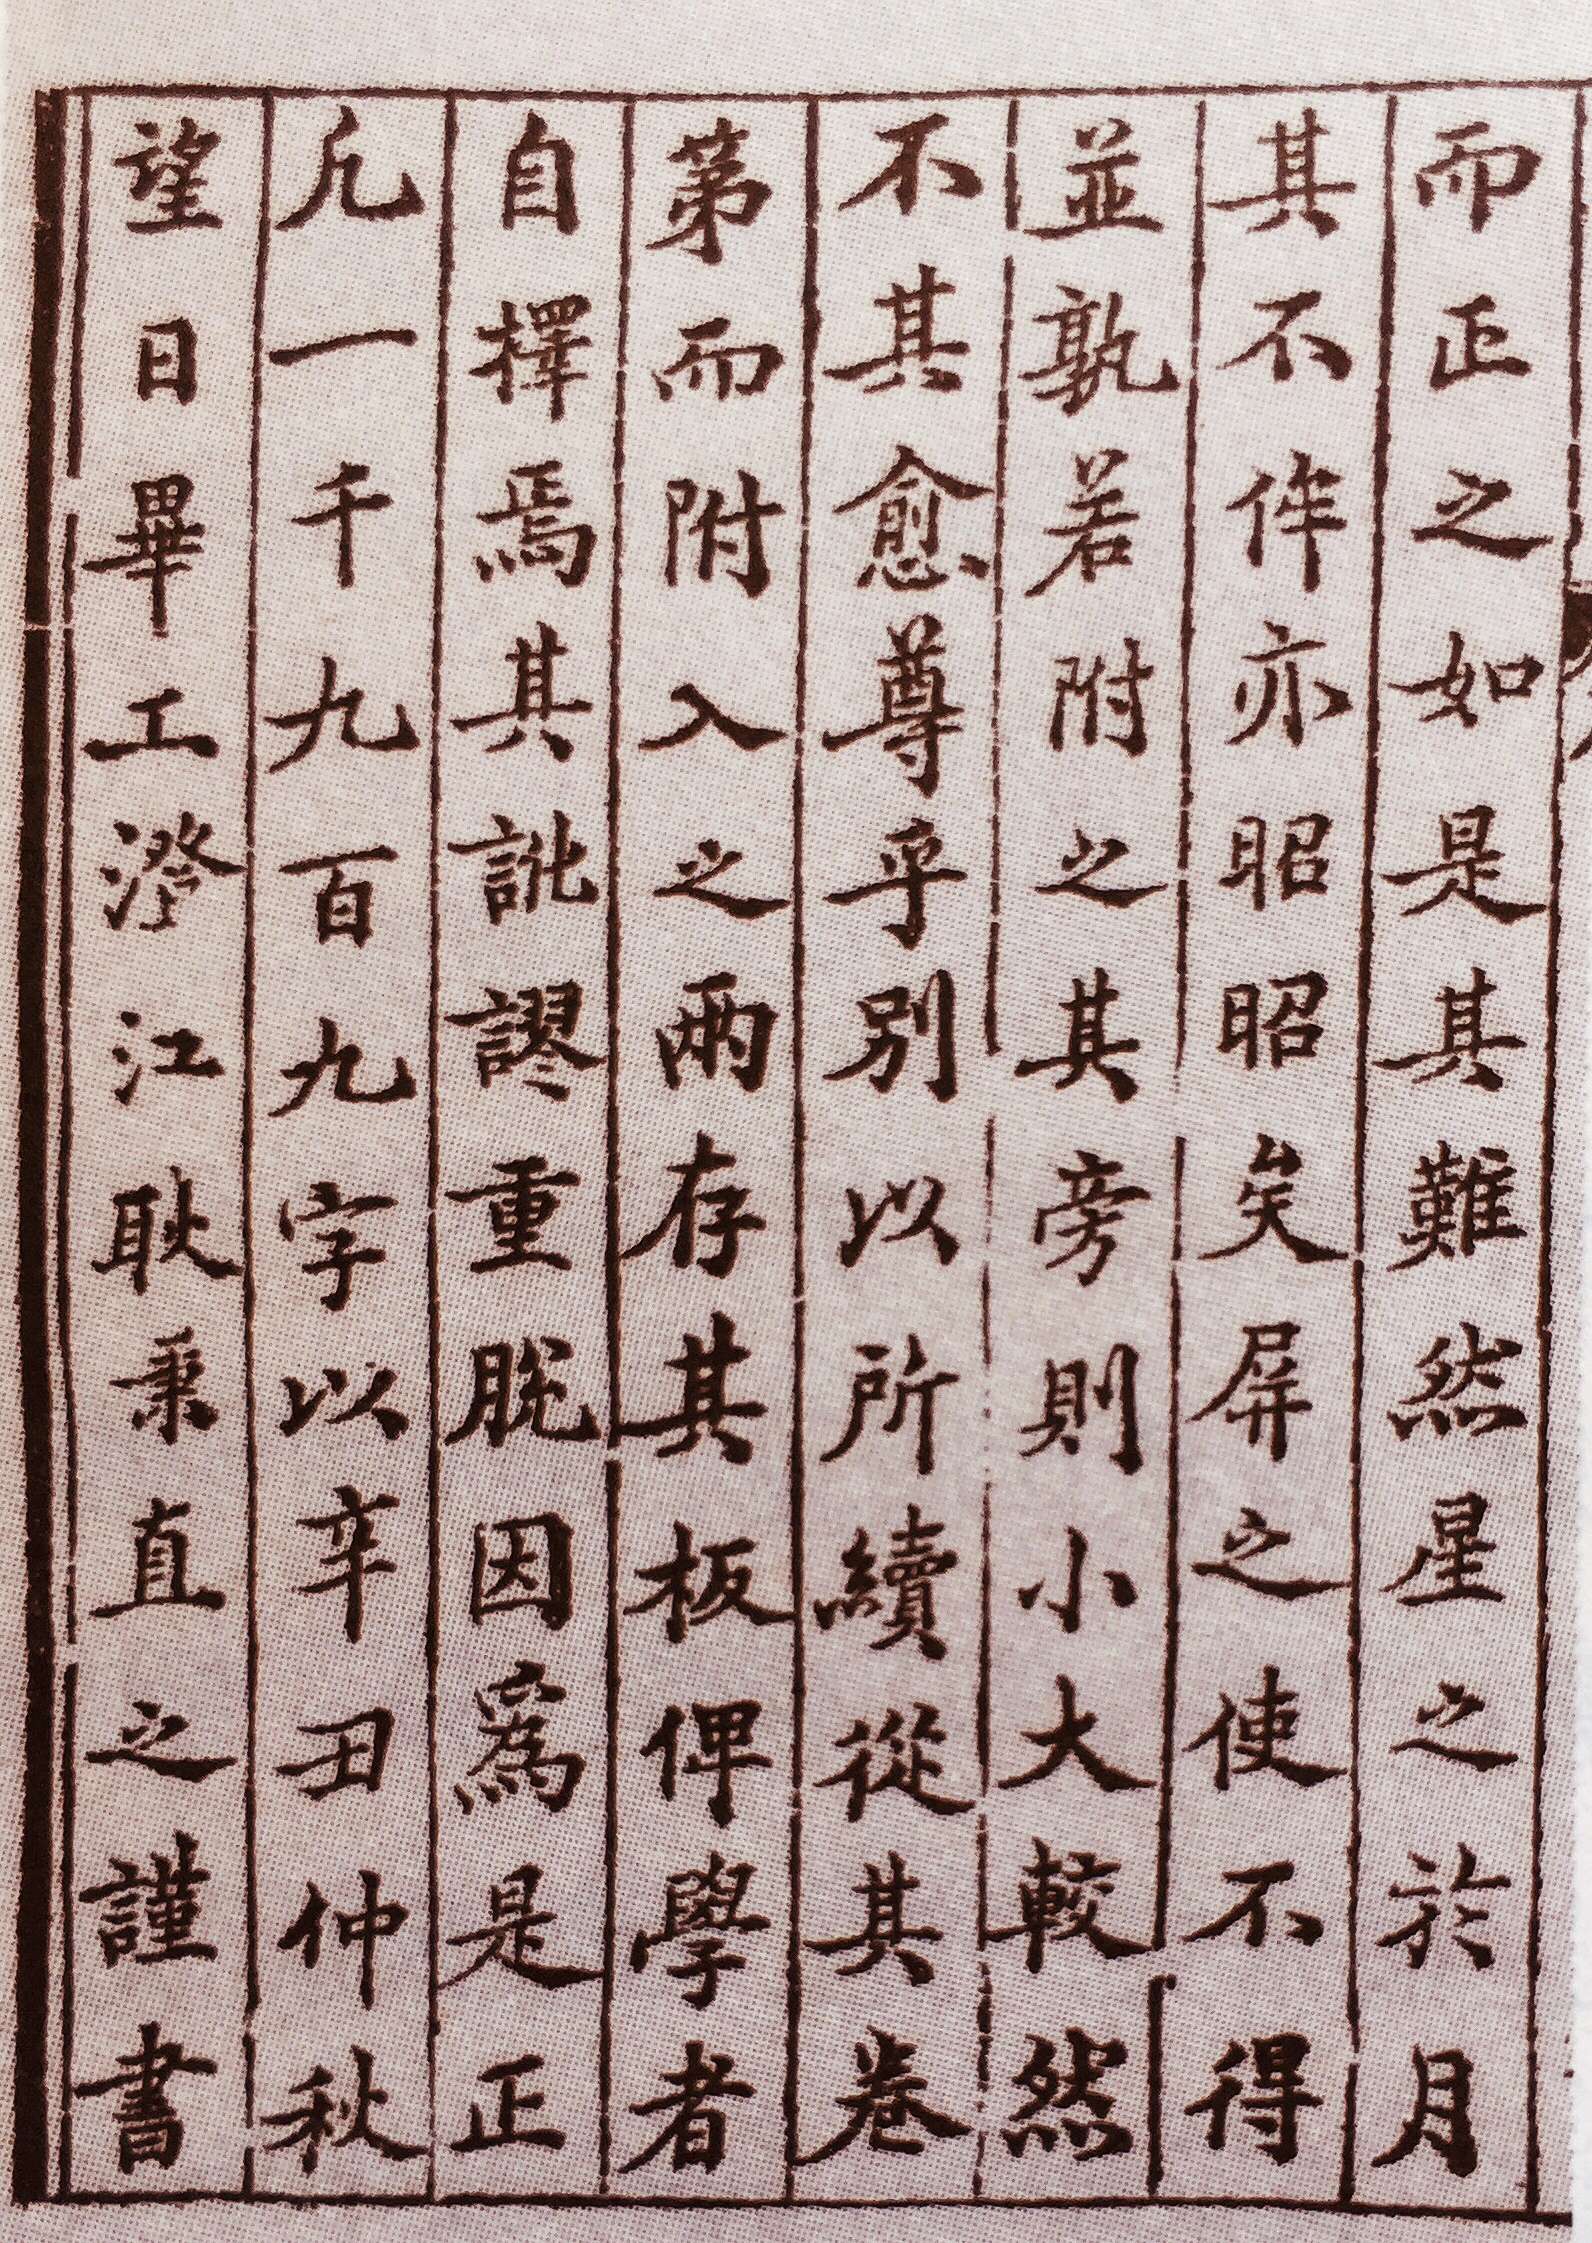 而正之如是其難然星之於月
其不侔亦昭昭矣屏之使不得
並孰若附之其旁則小大較然
不其愈尊乎別以所續從其卷
第而附入之兩存其板俾學者
自擇焉其訛謬重脱因爲是正
凡一千九百九字以辛丑仲秋
望日畢工澄江耿秉直之謹書